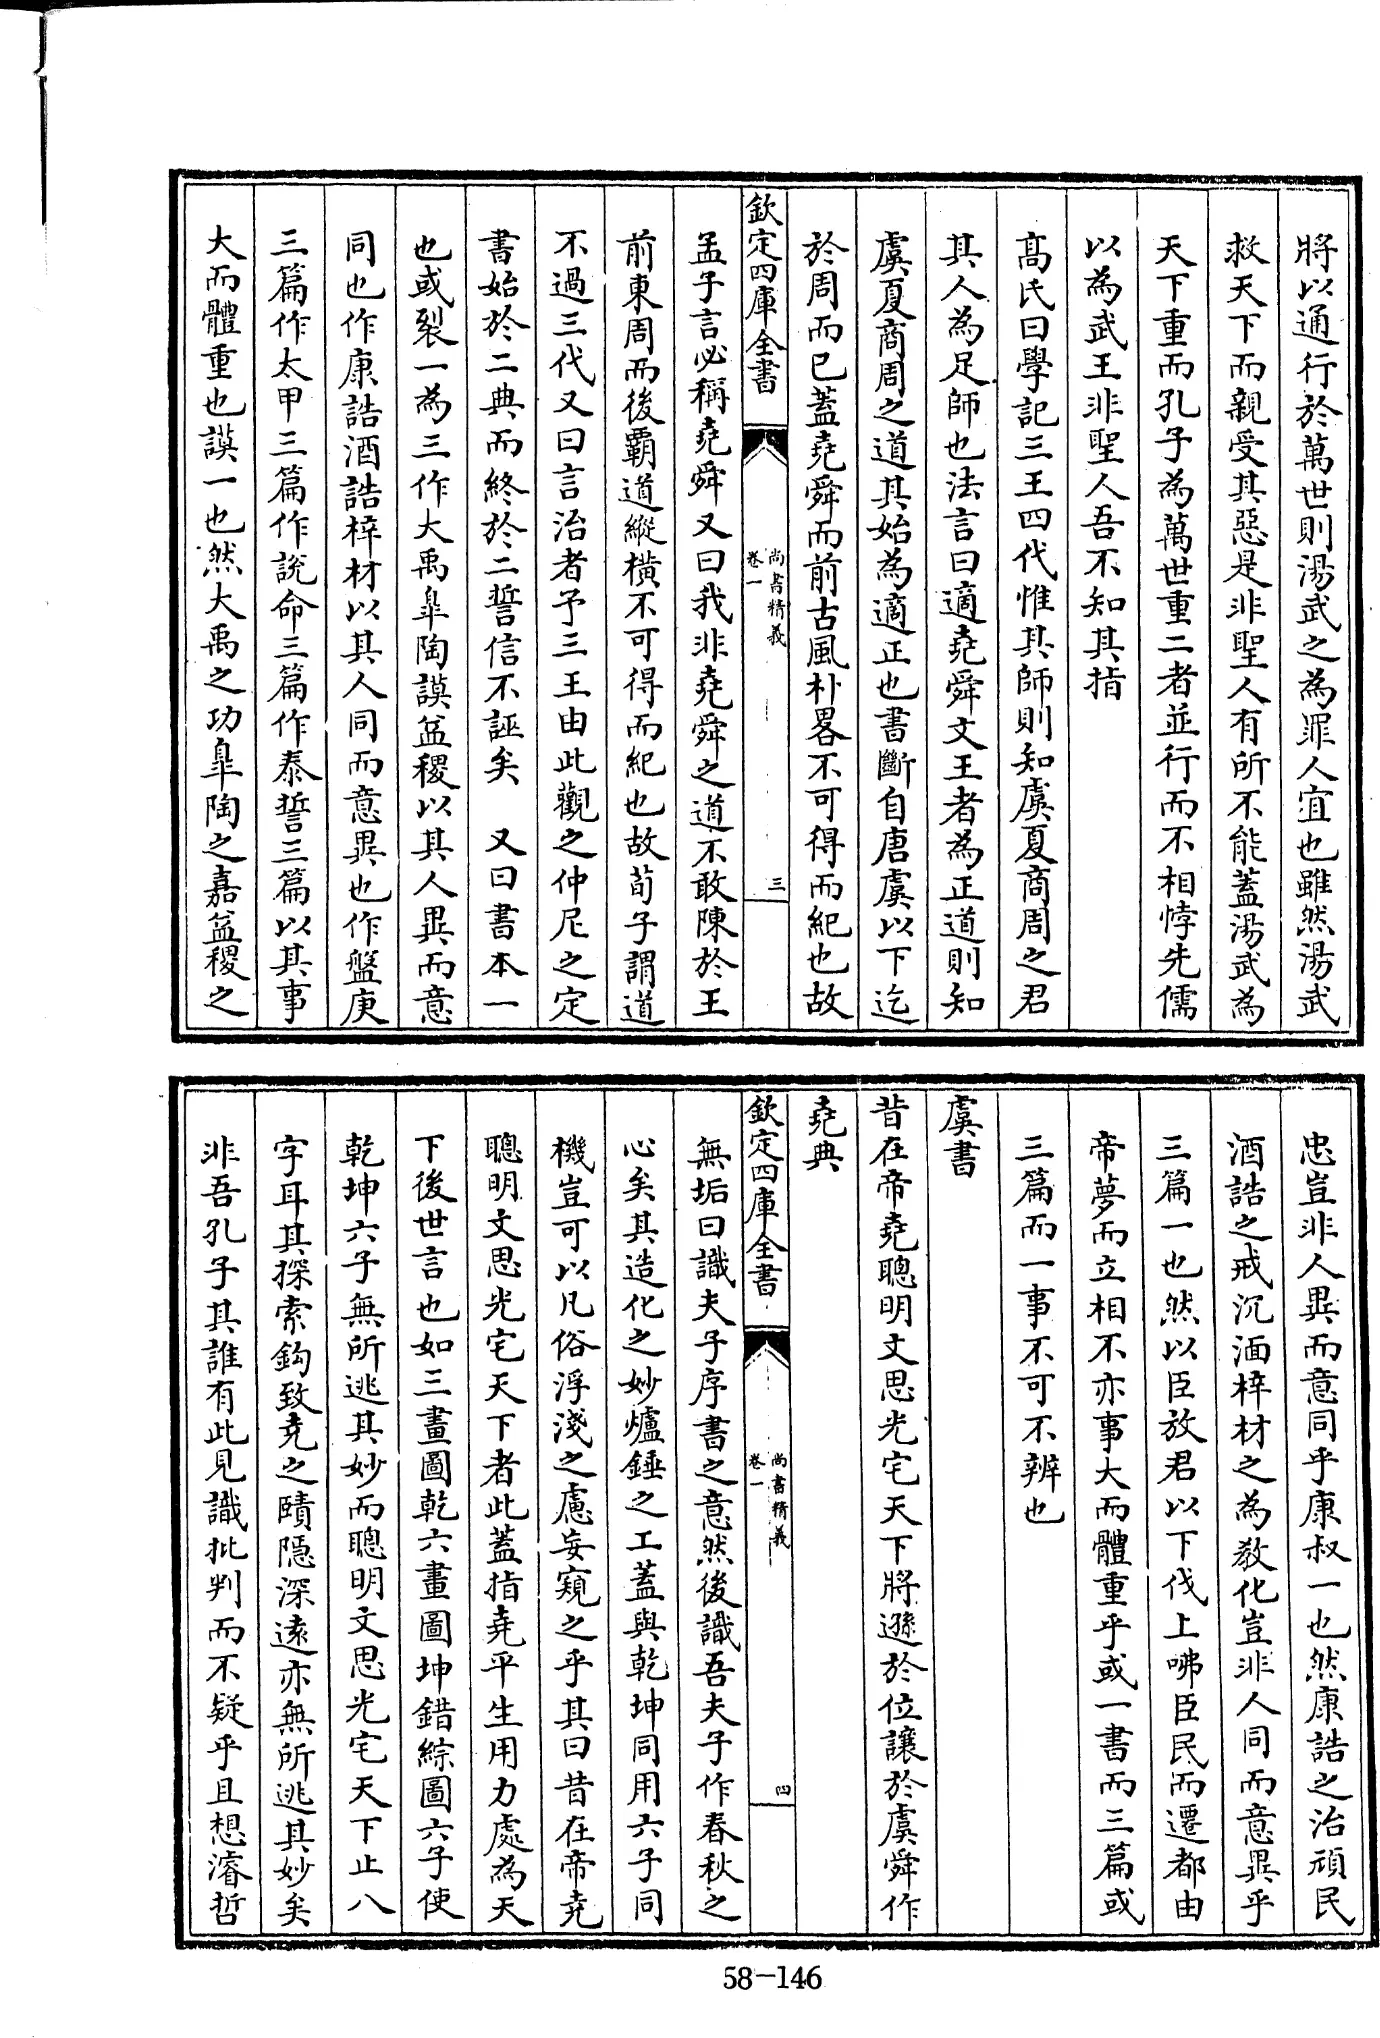 將以通行於萬世則湯武之為罪人宜也雖然湯武
救天下而親受其惡是非聖人有所不能蓋湯武為
天下重而孔子為萬世重二者並行而不相悖先儒
以為武王非聖人吾不知其指
髙氏曰學記三王四代惟其師則知虞夏商周之君
其人為足師也法言曰適堯舜文王者為正道則知
虞夏商周之道其始為適正也書斷自唐虞以下迄
於周而已蓋堯舜而前古風朴畧不可得而紀也故
欽定四庫全書
尚書精義
卷一
三
孟子言必稱堯舜又曰我非堯舜之道不敢陳於王
前東周而後霸道縱橫不可得而紀也故荀子謂道
不過三代又曰言治者予三王由此觀之仲尼之定
書始於二典而終於二誓信不誣矣　又曰書本一
也或裂一為三作大禹臯陶謨益稷以其人異而意
同也作康誥酒誥梓材以其人同而意異也作盤庚
三篇作太甲三篇作說命三篇作泰誓三篇以其事
大而體重也謨一也然大禹之功臯陶之嘉益稷之
忠豈非人異而意同乎康叔一也然康誥之治頑民
酒誥之戒沉湎梓材之為教化豈非人同而意異乎
三篇一也然以臣放君以下伐上咈臣民而遷都由
帝夢而立相不亦事大而體重乎或一書而三篇或
三篇而一事不可不辨也
虞書
昔在帝堯聰明文思光宅天下將遜於位讓於虞舜作
堯典
欽定四庫全書
尚書精義
卷一
四
無垢曰識夫子序書之意然後識吾夫子作春秋之
心矣其造化之妙爐錘之工蓋與乾坤同用六子同
機豈可以凡俗浮淺之慮妄窺之乎其曰昔在帝堯
聰明文思光宅天下者此蓋指堯平生用力處為天
下後世言也如三畫圖乾六畫圖坤錯綜圖六子使
乾坤六子無所逃其妙而聰明文思光宅天下止八
字耳其探索鈎致堯之賾隱深遠亦無所逃其妙矣
非吾孔子其誰有此見識批判而不疑乎且想濬哲
58-146